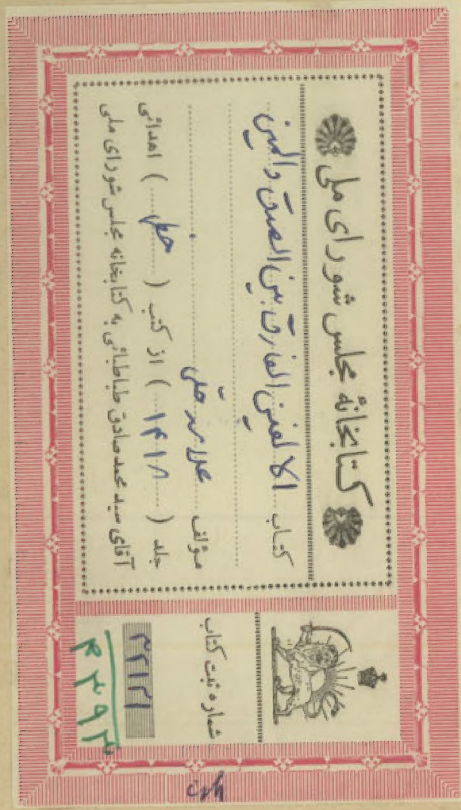 کتابخانهٔ مجلس شورای ملی
کتاب الالفین الفارق بین الصدق والمین
مؤلف علامه حلی
جلد (۱۴۱۸) از کتب (خطی) اهدائی
آقای سید محمد صادق طباطبائی به کتابخانه مجلس شورای ملی
شماره ثبت کتاب